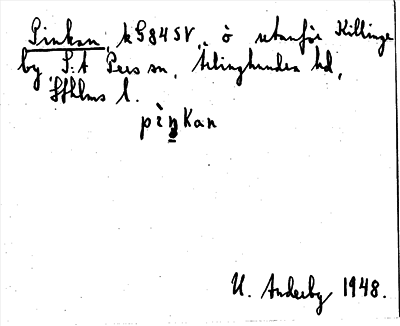 Pinkan, kG84SV, ö utanför Killinge
by, S:t Pers sn, Ärlinghundra hd,
Sthlms l.
pìŋkan
U. Anderby 1948.